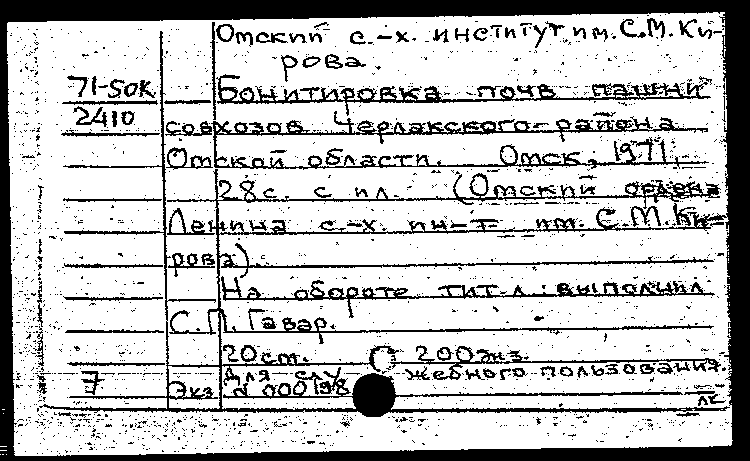 Омский с.-х. институт им. С.М. Ки-
рова.
71-50K Бонитировка почв пашни
2410 совхозов Черлакского района
Омской области. Омск, 1971.
28с. с ил. (Омский ордена
Ленина с.-х. ин-т им. С.М. Ки-
рова).
На обороте тит. л.: выполнил
С.П. Гавар.
20см. 200экз.
Для служебного пользования.
7 Экз. N 000198
лк